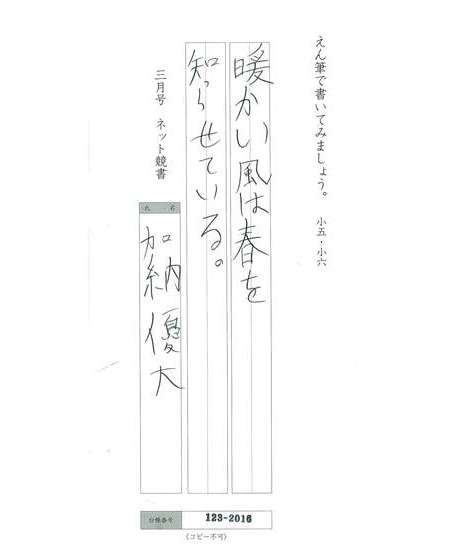 えん筆で書いてみましょう。 小五・小六
暖かい風は春を
知らせている。
三月号 ネット競書
氏名
加納優大
台帳番号 123-2016
(コピー不可)